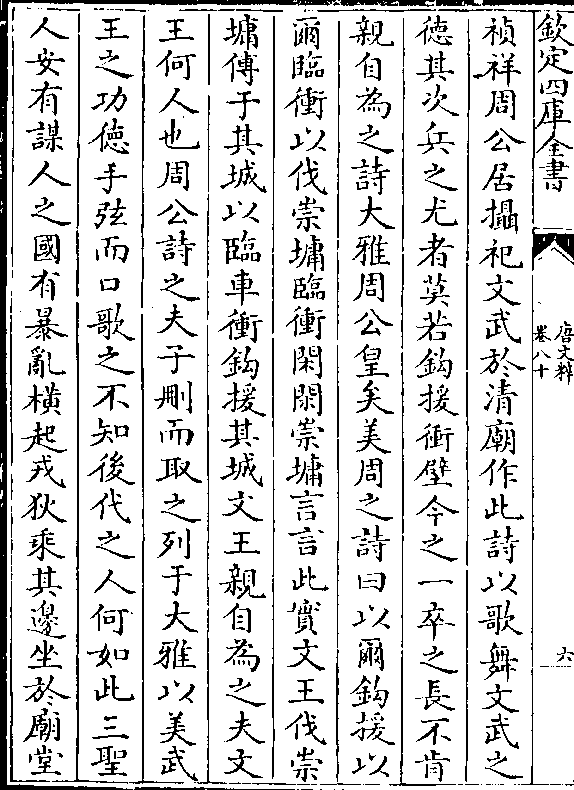 欽定四庫全書
唐文粹
卷八十
六
禎祥周公居攝祀文武於清廟作此詩以歌舞文武之
德其次兵之尤者莫若鈎援衝壁今之一卒之長不肯
親自為之詩大雅周公皇矣美周之詩曰以爾鈎援以
爾臨衝以伐崇墉臨衝閑閑崇墉言言此實文王伐崇
墉傅于其城以臨車衝鈎援其城文王親自為之夫文
王何人也周公詩之夫子刪而取之列于大雅以美武
王之功德手弦而口歌之不知後代之人何如此三聖
人安有謀人之國有暴亂橫起戎狄乘其邊坐於廟堂